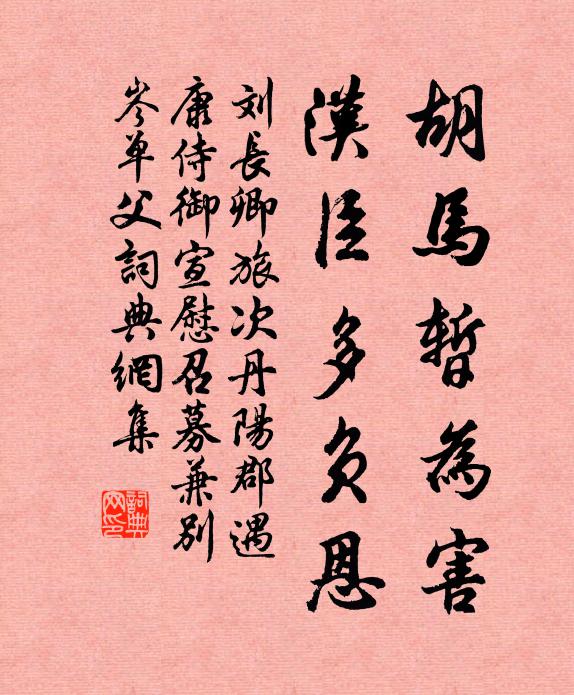 胡馬暫為害
漢臣多負恩
刘長卿旅次丹陽郡遇
康侍御宣慰召募兼別
岑单父詞典網集
詞典网印